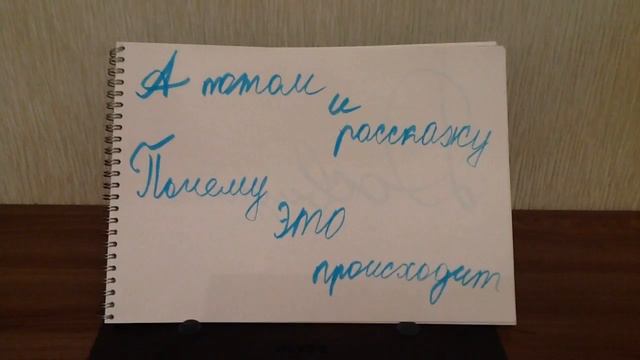 А потом
и
расскажу
Почему
это
происходит